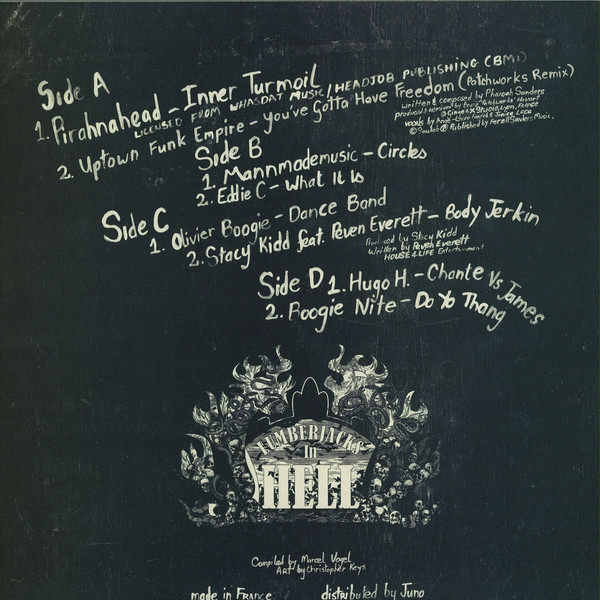 Side A
1. Pirahnahead – Inner Turmoil
LICENSED FROM WHASDAT MUSIC / HEADJOB PUBLISHING (BMI)
2. Uptown Funk Empire – You've Gotta Have Freedom (Patchworks Remix)
written & composed by Pharoah Sanders
Side B
1. Mannmademusic – Circles
2. Eddie C – What It Is
Side C
1. Olivier Boogie – Dance Band
2. Stacy Kidd feat. Peven Everett – Body Jerkin
Produced by Stacy Kidd
Written by Peven Everett
HOUSE 4 LIFE Entertainment
Side D
1. Hugo H. – Chante Vs James
2. Boogie Nite – Do Yo Thang
LUMBERJACKS
IN
HELL
Compiled by Marcel Vogel
ART by Christopher Keys
made in FRANCE
distributed by Juno